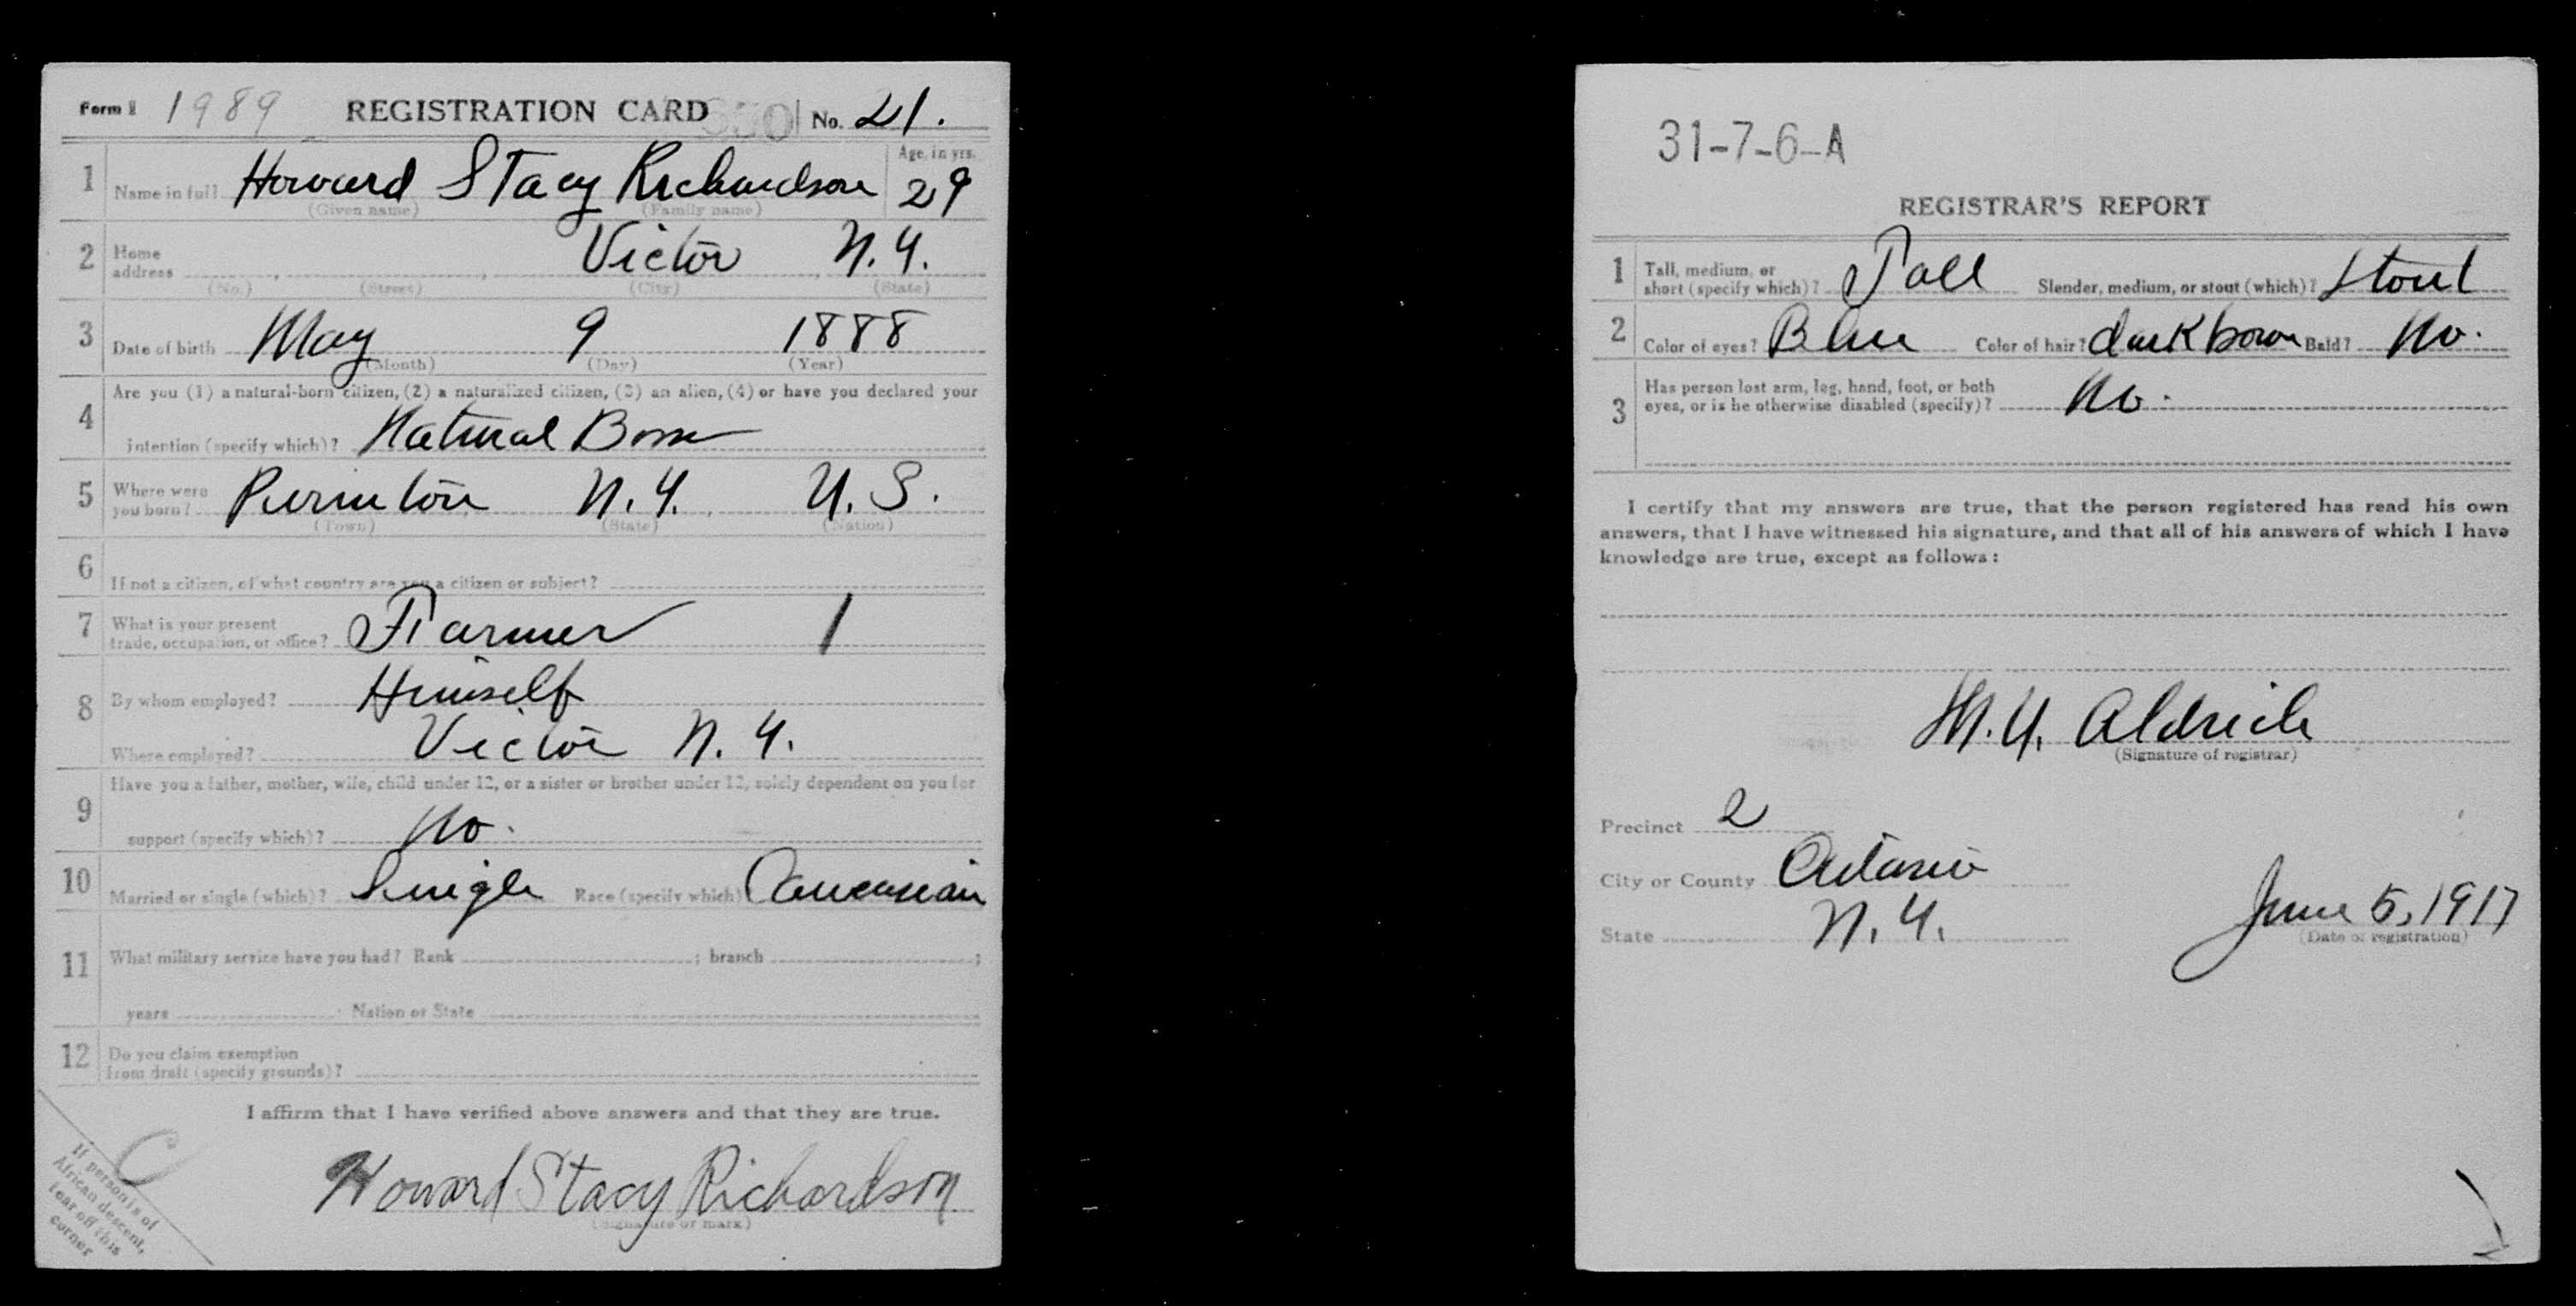 Form 1 1989 REGISTRATION CARD No. 21.
1 Name in full Howard Stacy Richardson Age, in yrs. 29
(Given name) (Family name)
2 Home address Victor N.Y.
(No.) (Street) (City) (State)
3 Date of birth May 9 1888
(Month) (Day) (Year)
4 Are you (1) a natural-born citizen, (2) a naturalized citizen, (3) an alien, (4) or have you declared your
intention (specify which)? Natural Born
5 Where were you born? Perinton N.Y. U.S.
(Town) (State) (Nation)
6 If not a citizen, of what country are you a citizen or subject?
7 What is your present trade, occupation, or office? Farmer 1
8 By whom employed? Himself
Where employed? Victor N.Y.
9 Have you a father, mother, wife, child under 12, or a sister or brother under 12, solely dependent on you for
support (specify which)? No.
10 Married or single (which)? Single Race (specify which) Caucasian
11 What military service have you had? Rank ; branch ;
years ; Nation or State
12 Do you claim exemption from draft (specify grounds)?
I affirm that I have verified above answers and that they are true.
Howard Stacy Richardson
(Signature or mark)
If person is of
African descent,
tear off this
corner
C
31-7-6-A
REGISTRAR'S REPORT
1 Tall, medium, or short (specify which)? Tall Slender, medium, or stout (which)? Stout
2 Color of eyes? Blue Color of hair? dark brown Bald? No.
3 Has person lost arm, leg, hand, foot, or both
eyes, or is he otherwise disabled (specify)? No.
I certify that my answers are true, that the person registered has read his own
answers, that I have witnessed his signature, and that all of his answers of which I have
knowledge are true, except as follows:
M.Y. Aldrich
(Signature of registrar)
Precinct 2
City or County Ontario
State N.Y.
June 5, 1917
(Date of registration)